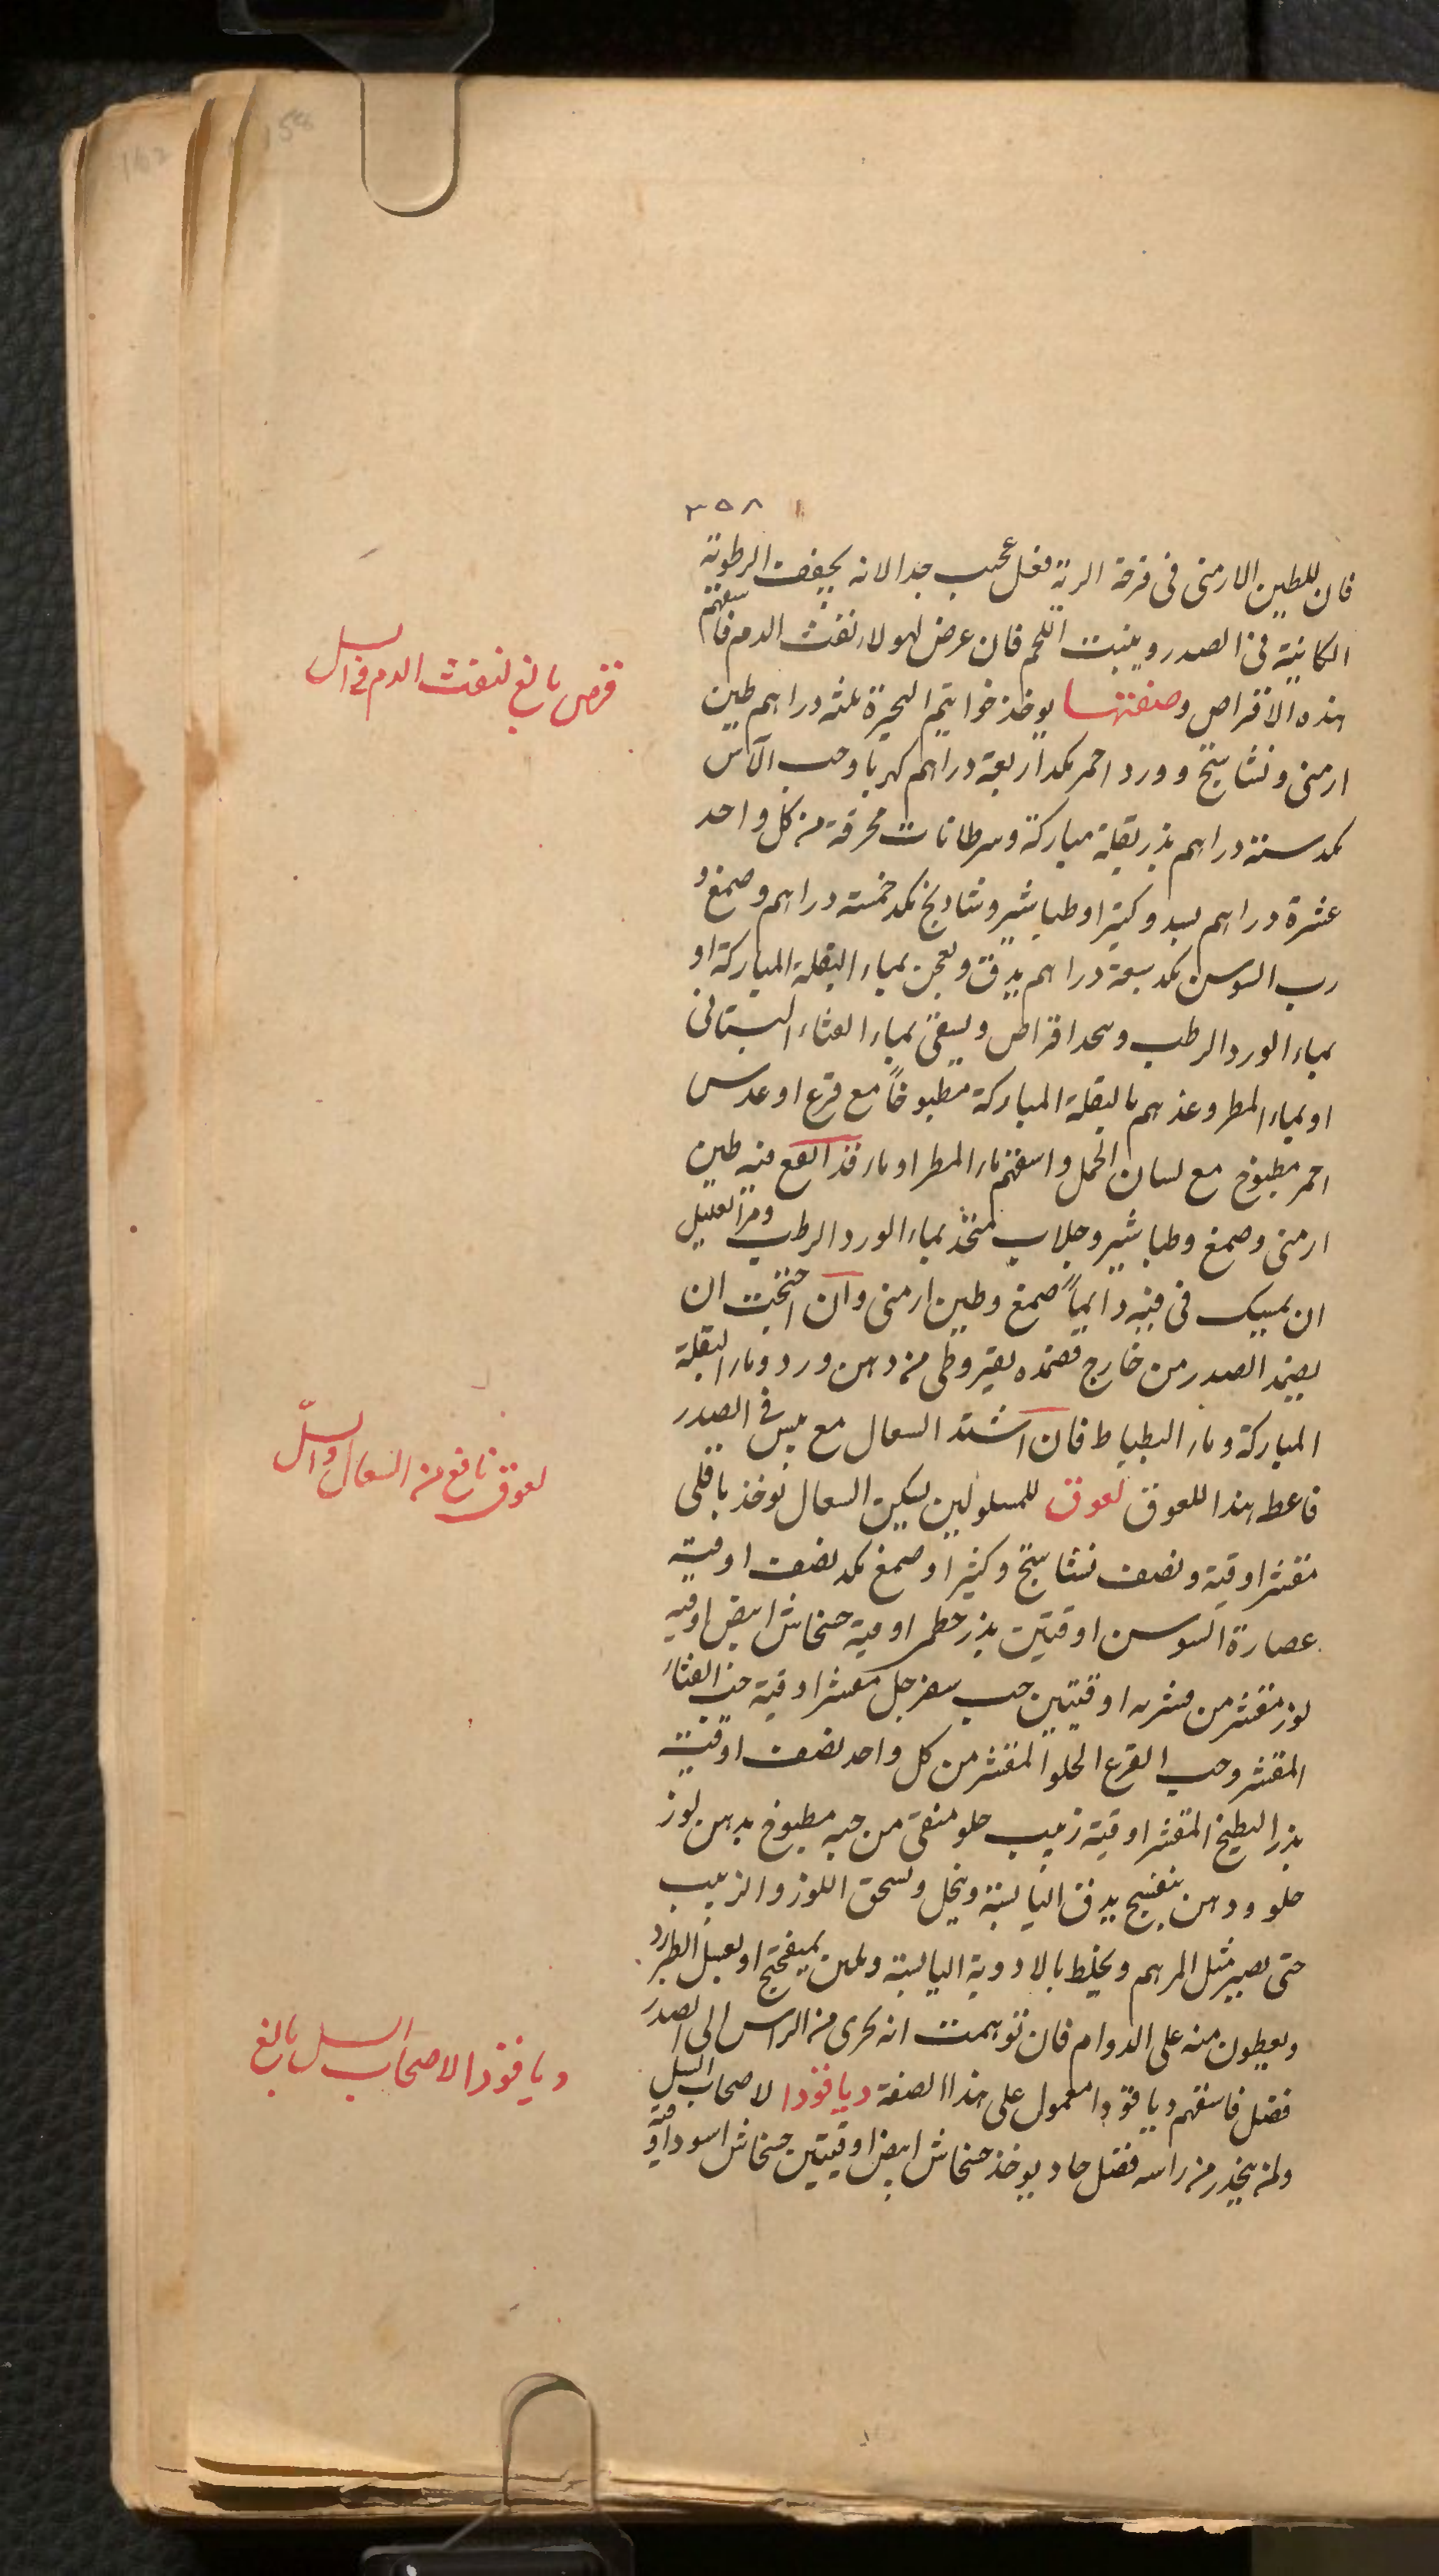 ٣٥٨
فان للطين الارمنى فى قرحة الرية فعل عجيب جدا لانه يجفف الرطوبة
الكاينة فى الصدر وينبت اللحم فان عرض لهولاء نفث الدم فاسقهم
هذه الاقراص وصفتها يوخذ خواتيم البحيرة ثلثه دراهم طين
ارمنى ونشاستج وورد احمر بكد اربعة دراهم كهربا وحب الآس
بكد ستة دراهم بذر بقلة مباركة وسرطانات محرقة من كل واحد
عشرة دراهم بسد وكثيرا وطباشير وشاذنج بكد خمسة دراهم وصمغ و
رب السوسن بكد سبعة دراهم يدق ويعجن بماء البقلة المباركة او
بماء الورد الرطب ويتخذ اقراص ويسقى بماء القثاء البستانى
او بماء المطر وغذهم بالبقلة المباركة مطبوخاً مع قرع او عدس
احمر مطبوخ مع لسان الحمل واسقهم ماء المطر او ماء قد انقع فيه طين
ارمنى وصمغ وطباشير وجلاب متخذ بماء الورد الرطب ومر العليل
ان يمسك فى فيه دايماً صمغ وطين ارمنى وان احتجت ان
يضمد الصدر من خارج فضمده بقيروطى من دهن ورد وماء البقلة
المباركة وماء البطباط فان اشتد السعال مع يبس فى الصدر
فاعط هذا اللعوق لعوق للمسلولين يسكن السعال يوخذ باقلى
مقشر اوقية ونصف نشاستج وكثيرا وصمغ بكد نصف اوقية
عصارة السوسن اوقيتين بذر خطمى اوقية خشخاش ابيض اوقيه
لوز مقشر من قشريه اوقيتين حب سفرجل مقشر اوقية حب القثاء
المقشر وحب القرع الحلو المقشر من كل واحد نصف اوقية
بذر البطيخ المقشر اوقية زبيب حلو منقى من حبه مطبوخ بدهن لوز
حلو ودهن بنفسج يدق اليابسة وينخل ويسحق اللوز والزبيب
حتى يصير مثل المرهم ويخلط بالادوية اليابسة ويعجن بميفختج او بعسل الطبرزد
ويعطون منه على الدوام فان توهمت انه يجرى من الراس الى الصدر
فضل فاسقهم دياقودا معمول على هذا الصفة دياقودا لاصحاب السل
ولمن ينحدر من راسه فضل حاد يوخذ خشخاش ابيض اوقيتين خشخاش اسود اوقية
قرص بالغ لنفث الدم فى السل
لعوق نافع من السعال والسلّ
دياقودا لاصحاب السل بالغ
158
162